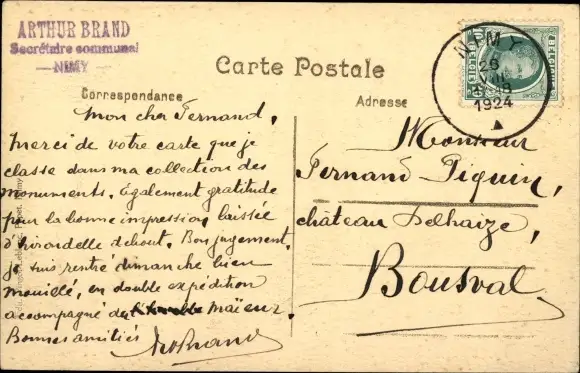 ARTHUR BRAND
Secrétaire communal
— NIMY —
Carte Postale
Correspondance
Adresse
NIMY
26
VIII
18
1924
BELGIQUE
BELGIE
Mon cher Fernand,
Merci de votre carte que je
classe dans ma collection des
monuments. Également gratitude
pour la bonne impression laissée
d'hirondelle debout. Bon jugement.
je suis rentré dimanche, bien
mouillé, en double expédition
accompagné du Maïeur.
Bonnes amitiés
ArtBrand
Monsieur
Fernand Piquin,
château Delhaize,
Bousval